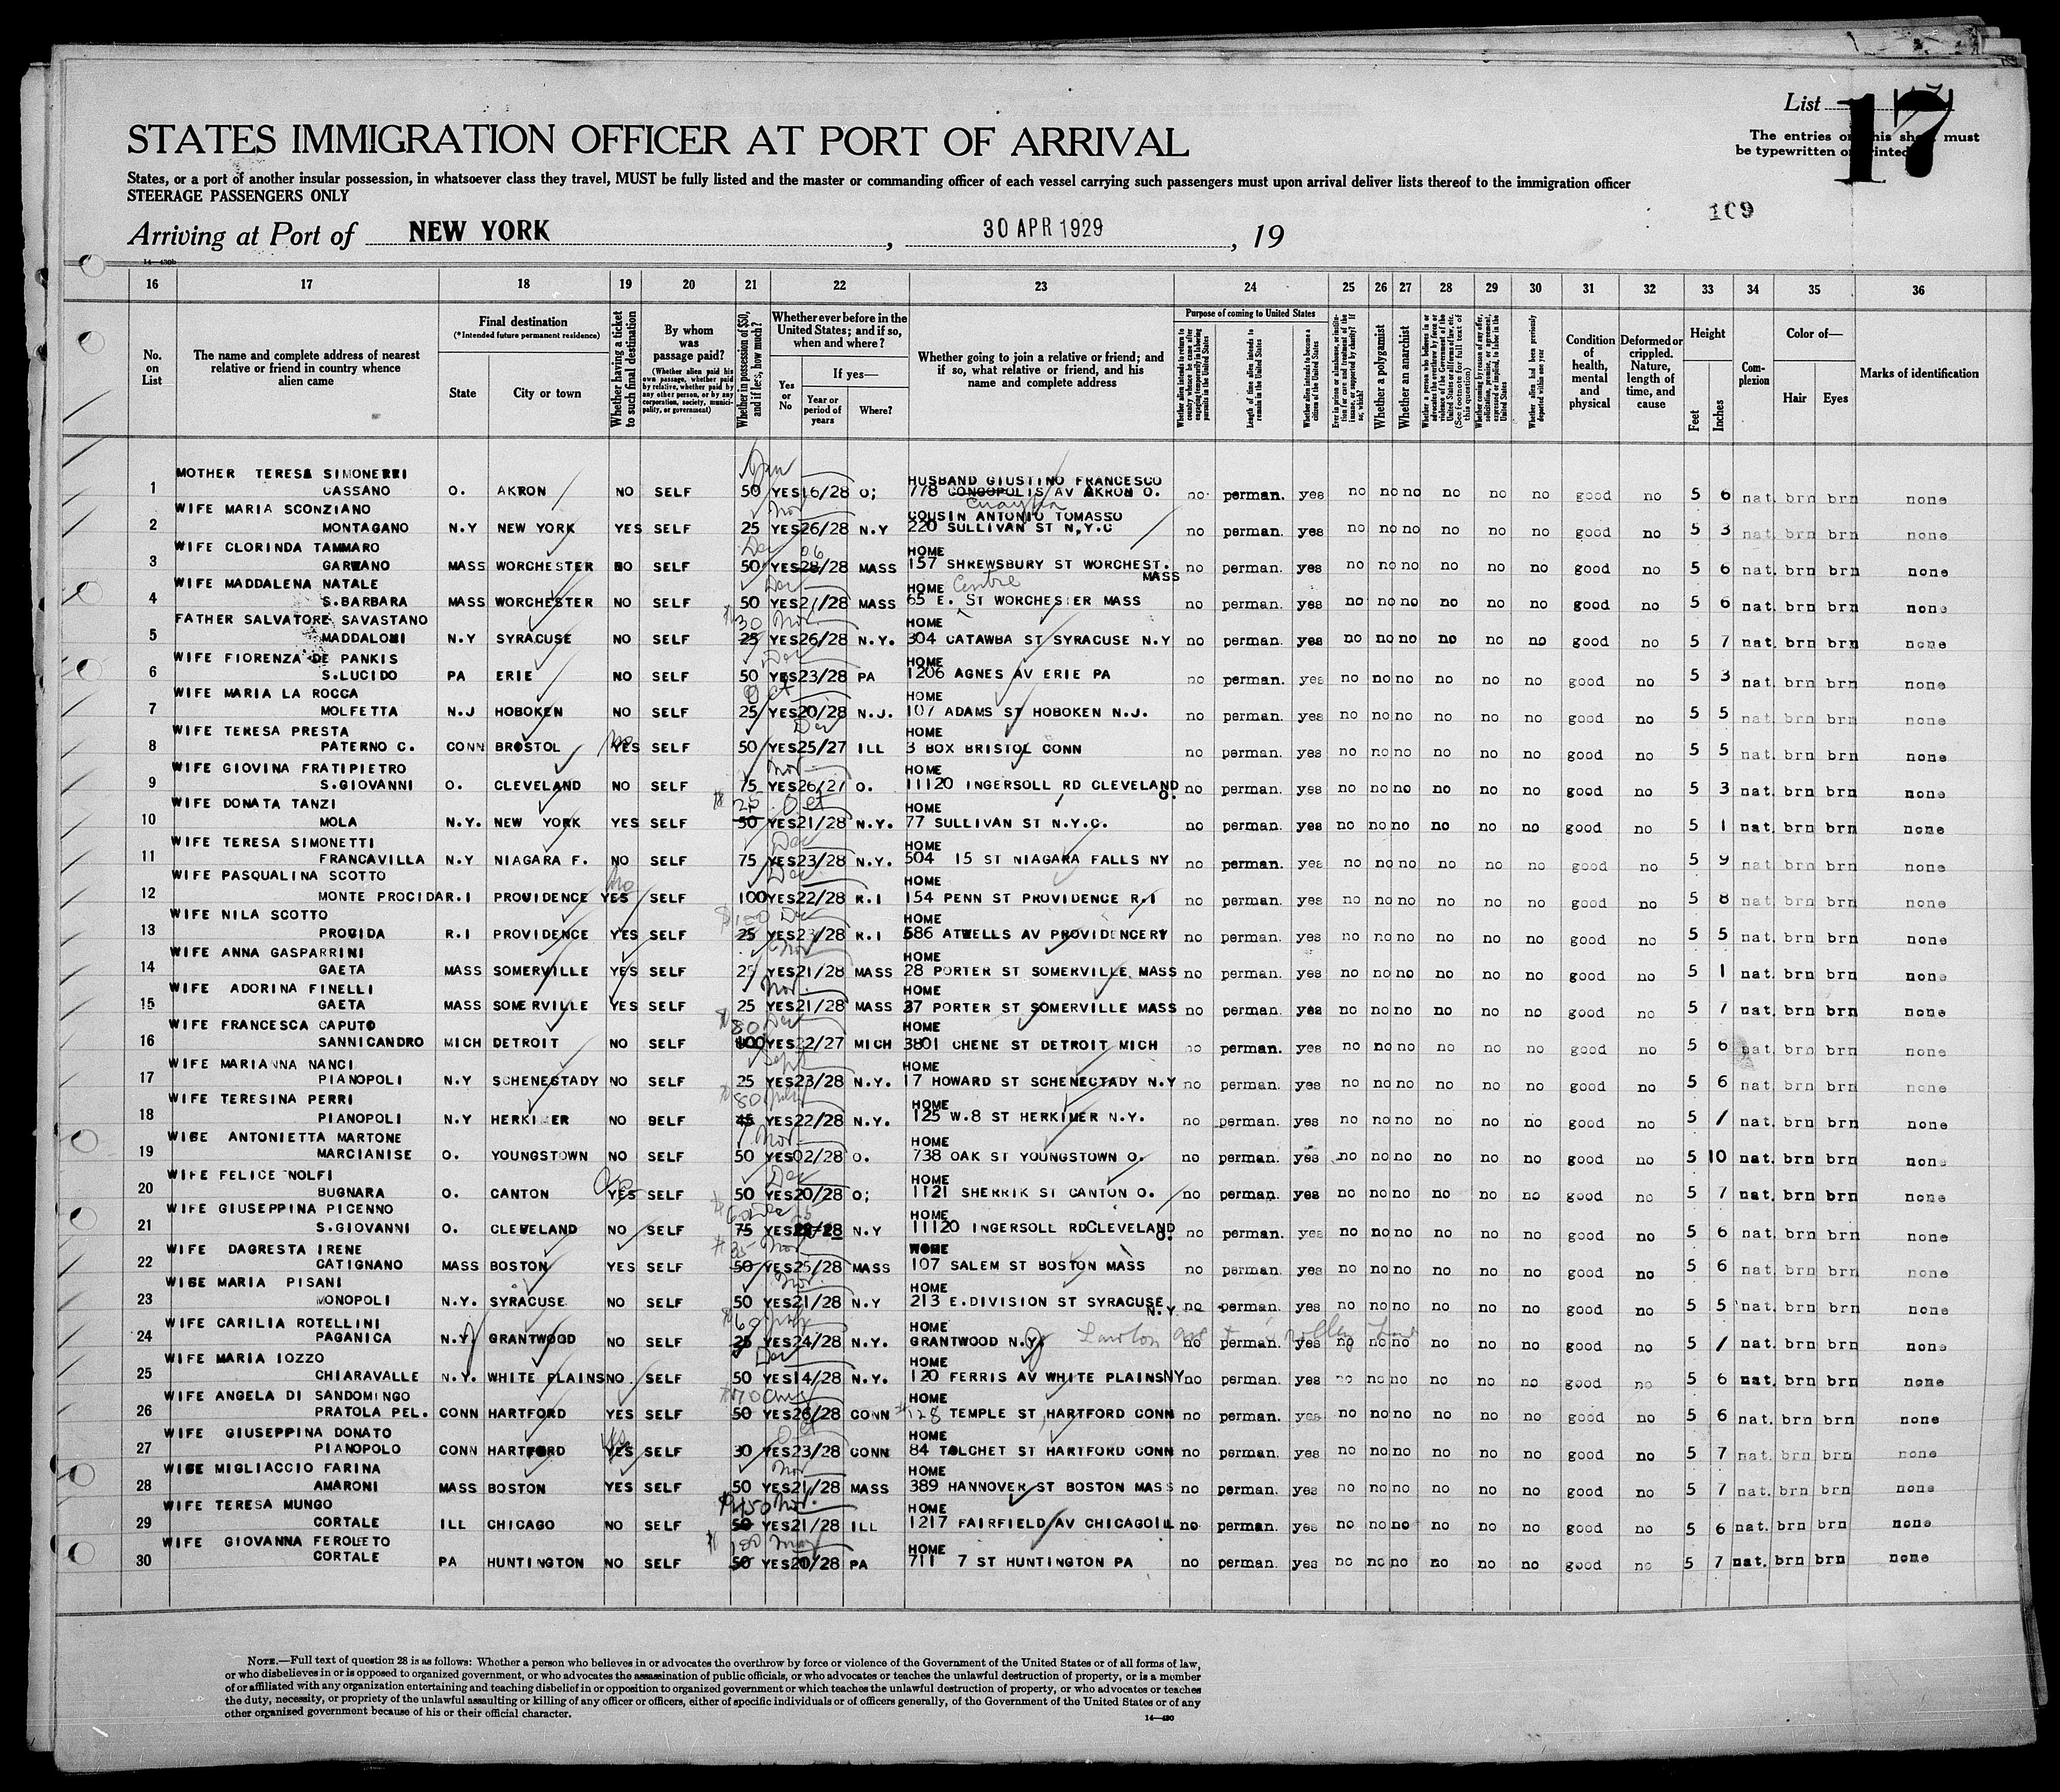 List 17
The entries on this sheet must
be typewritten or printed
STATES IMMIGRATION OFFICER AT PORT OF ARRIVAL
States, or a port of another insular possession, in whatsoever class they travel, MUST be fully listed and the master or commanding officer of each vessel carrying such passengers must upon arrival deliver lists thereof to the immigration officer
STEERAGE PASSENGERS ONLY
109
Arriving at Port of NEW YORK, 30 APR 1929, 19
14—430b
16 17 18 19 20 21 22 23 24 25 26 27 28 29 30 31 32 33 34 35 36
No. on List
The name and complete address of nearest relative or friend in country whence alien came
Final destination
(*Intended future permanent residence)
State
City or town
Whether having a ticket to such final destination
By whom was passage paid?
(Whether alien paid his own passage, whether paid by relative, whether paid by any other person, or by any corporation, society, municipality, or government)
Whether in possession of $50, and if less, how much?
Whether ever before in the United States; and if so, when and where?
Yes or No
If yes—
Year or period of years
Where?
Whether going to join a relative or friend; and if so, what relative or friend, and his name and complete address
Purpose of coming to United States
Whether alien intends to return to country whence he came after engaging temporarily in laboring pursuits in the United States
Length of time alien intends to remain in the United States
Whether alien intends to become a citizen of the United States
Whether a polygamist
Whether an anarchist
Condition of health, mental and physical
Deformed or crippled. Nature, length of time, and cause
Height
Feet
Inches
Complexion
Color of—
Hair
Eyes
Marks of identification
MOTHER TERESA SIMONERRI HUSBAND GIUSTINO FRANCESCO
1 CASSANO O. AKRON NO SELF 50 YES 16/28 O; 778 CONGOPOLIS AV AKRON O. no perman. yes no no no no no no good no 5 6 nat. brn brn none
WIFE MARIA SCONZIANO COUSIN ANTONIO TOMASSO
2 MONTAGANO N.Y NEW YORK YES SELF 25 YES 26/28 N.Y 220 SULLIVAN ST N.Y.C no perman. yes no no no no no no good no 5 3 nat. brn brn none
WIFE CLORINDA TAMMARO HOME
3 MASS WORCHESTER NO SELF 50 YES 28/28 06 MASS 157 SHREWSBURY ST WORCHEST. MASS no perman. yes no no no no no no good no 5 6 nat. brn brn none
WIFE MADDALENA NATALE HOME Centre
4 S.BARBARA MASS WORCHESTER NO SELF 50 YES 21/28 MASS 65 E. ST WORCHESTER MASS no perman. yes no no no no no no good no 5 6 nat. brn brn none
FATHER SALVATORE SAVASTANO 30 HOME
5 MADDALONI N.Y SYRACUSE NO SELF 25 YES 26/28 N.Y. 304 CATAWBA ST SYRACUSE N.Y no perman. yes no no no no no no good no 5 7 nat. brn brn none
WIFE FIORENZA DE PANKIS Dec HOME
6 S.LUCIDO PA ERIE NO SELF 50 YES 23/28 PA 1206 AGNES AV ERIE PA no perman. yes no no no no no no good no 5 3 nat. brn brn none
WIFE MARIA LA ROCCA Oct HOME
7 MOLFETTA N.J HOBOKEN NO SELF 25 YES 20/28 N.J. 107 ADAMS ST HOBOKEN N.J. no perman. yes no no no no no no good no 5 5 nat. brn brn none
WIFE TERESA PRESTA Dec HOME
8 PATERNO C. CONN BROSTOL YES SELF 50 YES 25/27 ILL 3 BOX BRISTOL CONN no perman. yes no no no no no no good no 5 5 nat. brn brn none
WIFE GIOVINA FRATIPIETRO Nov HOME
9 S.GIOVANNI O. CLEVELAND NO SELF 75 YES 26/27 O. 11120 INGERSOLL RD CLEVELAND O. no perman. yes no no no no no no good no 5 3 nat. brn brn none
WIFE DONATA TANZI 25 Oct HOME
10 MOLA N.Y. NEW YORK YES SELF 50 YES 21/28 N.Y. 77 SULLIVAN ST N.Y.C. no perman. yes no no no no no no good no 5 1 nat. brn brn none
WIFE TERESA SIMONETTI Dec HOME
11 FRANCAVILLA N.Y NIAGARA F. NO SELF 75 YES 23/28 N.Y. 504 15 ST NIAGARA FALLS NY no perman. yes no no no no no no good no 5 9 nat. brn brn none
WIFE PASQUALINA SCOTTO no Dec HOME
12 MONTE PROCIDA R.I PROVIDENCE YES SELF 100 YES 22/28 R.I 154 PENN ST PROVIDENCE R.I no perman. yes no no no no no no good no 5 8 nat. brn brn none
WIFE NILA SCOTTO Dec HOME
13 PROCIDA R.I PROVIDENCE YES SELF 25 YES 23/28 R.I 586 ATWELLS AV PROVIDENCERY no perman. yes no no no no no no good no 5 5 nat. brn brn none
WIFE ANNA GASPARRINI Nov HOME
14 GAETA MASS SOMERVILLE YES SELF 25 YES 21/28 MASS 28 PORTER ST SOMERVILLE MASS no perman. yes no no no no no no good no 5 1 nat. brn brn none
WIFE ADORINA FINELLI Nov. HOME
15 GAETA MASS SOMERVILLE YES SELF 25 YES 21/28 MASS 37 PORTER ST SOMERVILLE MASS no perman. yes no no no no no no good no 5 1 nat. brn brn none
WIFE FRANCESCA CAPUTO $80 Dec HOME
16 SANNICANDRO MICH DETROIT NO SELF 100 YES 22/27 MICH 3801 CHENE ST DETROIT MICH no perman. yes no no no no no no good no 5 6 nat. brn brn none
WIFE MARIANNA NANCI Sept HOME
17 PIANOPOLI N.Y SCHENESTADY NO SELF 25 YES 23/28 N.Y. 17 HOWARD ST SCHENECTADY N.Y no perman. yes no no no no no no good no 5 6 nat. brn brn none
WIFE TERESINA PERRI 80 HOME
18 PIANOPOLI N.Y HERKIMER NO SELF 45 YES 22/28 N.Y. 125 W.8 ST HERKIMER N.Y. no perman. yes no no no no no no good no 5 / nat. brn brn none
WIBE ANTONIETTA MARTONE Nov. HOME
19 MARCIANISE O. YOUNGSTOWN NO SELF 50 YES 02/28 O. 738 OAK ST YOUNGSTOWN O. no perman. yes no no no no no no good no 5 10 nat. brn brn none
WIFE FELICE NOLFI Dec HOME
20 BUGNARA O. CANTON YES SELF 50 YES 20/28 O; 1121 SHERRIK ST CANTON O. no perman. yes no no no no no no good no 5 7 nat. brn brn none
WIFE GIUSEPPINA PICENNO Dec HOME
21 S.GIOVANNI O. CLEVELAND NO SELF 75 YES N.Y 11120 INGERSOLL RDCLEVELAND O. no perman. yes no no no no no no good no 5 6 nat. brn brn none
WIFE DAGRESTA IRENE 35 Nov HOME
22 CATIGNANO MASS BOSTON YES SELF 50 YES 25/28 MASS 107 SALEM ST BOSTON MASS no perman. yes no no no no no no good no 5 6 nat. brn brn none
WIBE MARIA PISANI Nov. HOME
23 MONOPOLI N.Y. SYRACUSE NO SELF 50 YES 21/28 N.Y 213 E.DIVISION ST SYRACUSE N.Y. no perman. yes no no no no no no good no 5 5 nat. brn brn none
WIFE CARILIA ROTELLINI 60 HOME
24 PAGANICA N.Y. GRANTWOOD NO SELF 25 YES 24/28 N.Y. GRANTWOOD N.Y. no perman. yes no no no no no no good no 5 / nat. brn brn none
WIFE MARIA IOZZO Dec HOME
25 CHIARAVALLE N.Y. WHITE PLAINS NO SELF 50 YES 14/28 N.Y. 120 FERRIS AV WHITE PLAINSNY no perman. yes no no no no no no good no 5 6 nat. brn brn none
WIFE ANGELA DI SANDOMINGO $70 Aug HOME
26 PRATOLA PEL. CONN HARTFORD YES SELF 50 YES 26/28 CONN 128 TEMPLE ST HARTFORD CONN no perman. yes no no no no no no good no 5 6 nat. brn brn none
WIFE GIUSEPPINA DONATO Oct HOME
27 PIANOPOLO CONN HARTFORD YES SELF 30 YES 23/28 CONN 84 TALCHET ST HARTFORD CONN no perman. yes no no no no no no good no 5 7 nat. brn brn none
WIBE MIGLIACCIO FARINA Nov HOME
28 AMARONI MASS BOSTON YES SELF 50 YES 21/28 MASS 389 HANNOVER ST BOSTON MASS no perman. yes no no no no no no good no 5 7 nat. brn brn none
WIFE TERESA MUNGO $150 Nov. HOME
29 CORTALE ILL CHICAGO NO SELF 50 YES 21/28 ILL 1217 FAIRFIELD AV CHICAGOILL no perman. yes no no no no no no good no 5 6 nat. brn brn none
WIFE GIOVANNA FEROLETO HOME
30 CORTALE PA HUNTINGTON NO SELF 50 YES 20/28 PA 711 7 ST HUNTINGTON PA no perman. yes no no no no no no good no 5 7 nat. brn brn none
NOTE.—Full text of question 28 is as follows: Whether a person who believes in or advocates the overthrow by force or violence of the Government of the United States or of all forms of law,
or who disbelieves in or is opposed to organized government, or who advocates the assassination of public officials, or who advocates or teaches the unlawful destruction of property, or is a member
of or affiliated with any organization entertaining and teaching disbelief in or opposition to organized government or which teaches the unlawful destruction of property, or who advocates or teaches
the duty, necessity, or propriety of the unlawful assaulting or killing of any officer or officers, either of specific individuals or of officers generally, of the Government of the United States or of any
other organized government because of his or their official character.
14—430